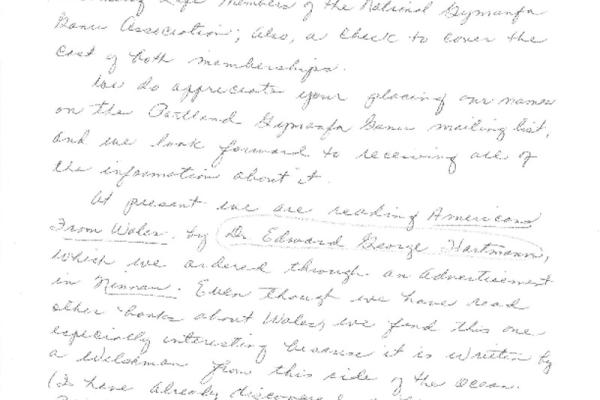 Life Members of the National Gymanfa
Ganu Association; also, a check to cover the
cost of both memberships.
We do appreciate your placing our names
on the Portland Gymanfa Ganu mailing list,
and we look forward to receiving all of
the information about it.
At present we are reading Americans
From Wales by Dr. Edward George Hartmann,
which we ordered through an advertisement
in Ninnau. Even though we have read
other books about Wales, we find this one
especially interesting because it is written by
a Welshman from this side of the ocean.
(I have already